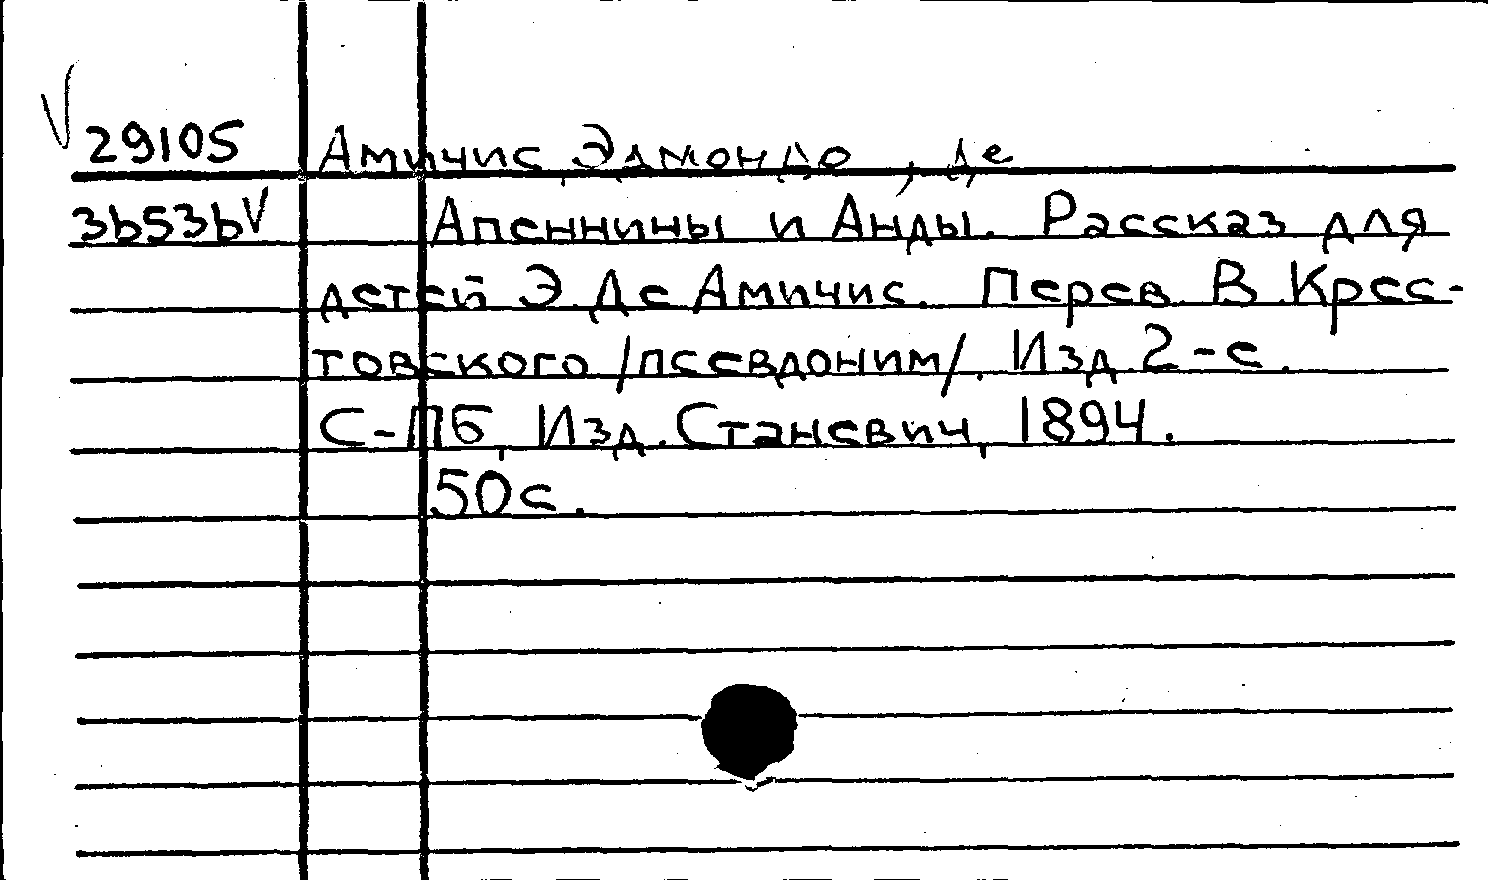 29105 Амичис, Эдмондо, де
3b53b Апеннины и Анды. Рассказ для
детей Э. Де Амичис. Перев. В. Крес-
товского /псевдоним/. Изд. 2-е.
С-ПБ, Изд. Станевич, 1894.
50с.